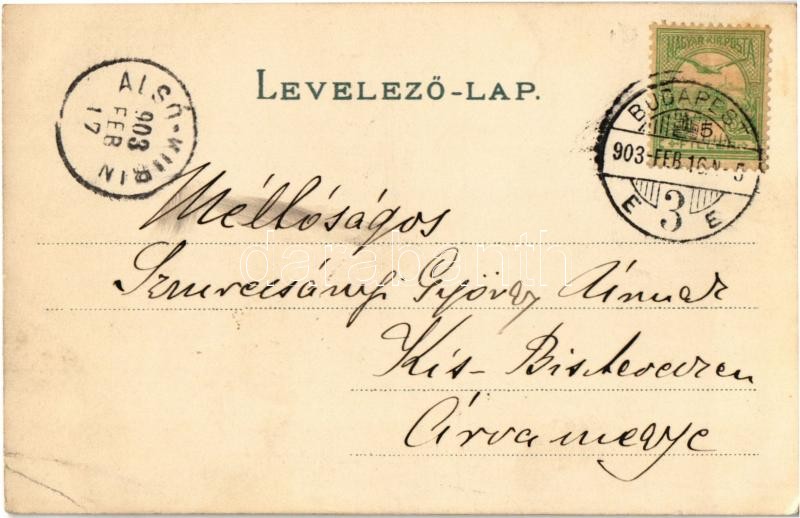 LEVELEZŐ-LAP.
ALSÓ-KUBIN
903
FEB
17
MAGYAR KIR. POSTA
5
BUDAPEST
903-FEB.16.N-5
E 3 E
Méltóságos
Szmrecsányi György Úrnak
Kis-
Árvamegye
darabanth